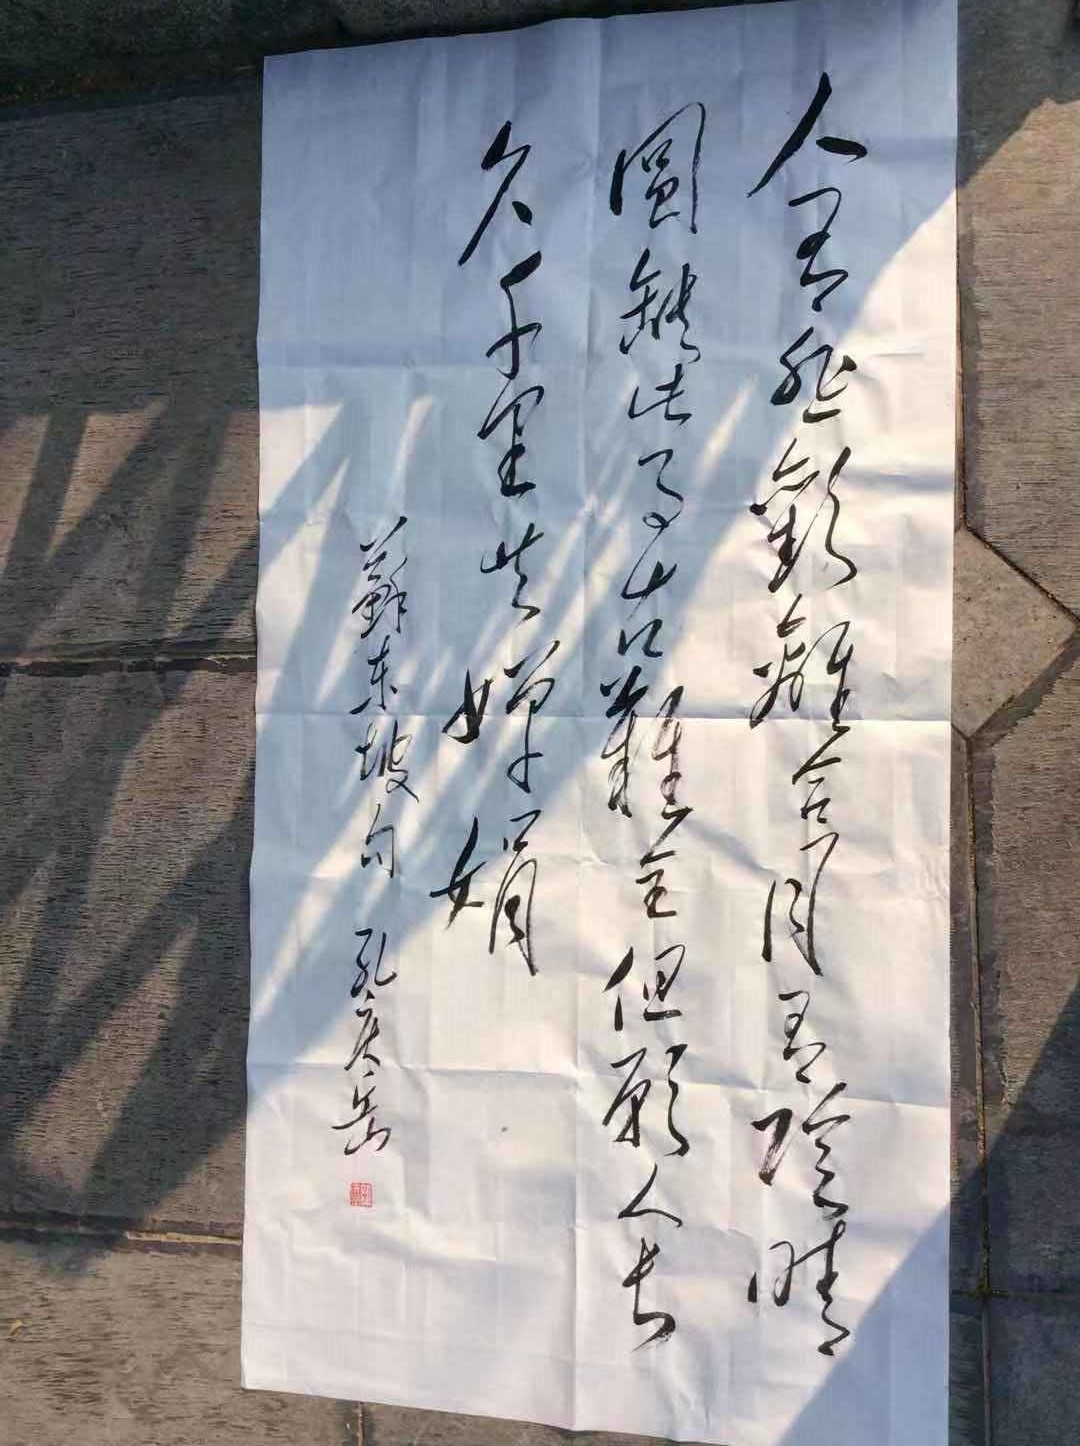 人有悲歡離合月有陰晴
圓缺此事古難全但願人長
久千里共嬋娟
蘇東坡句 孔庆岳